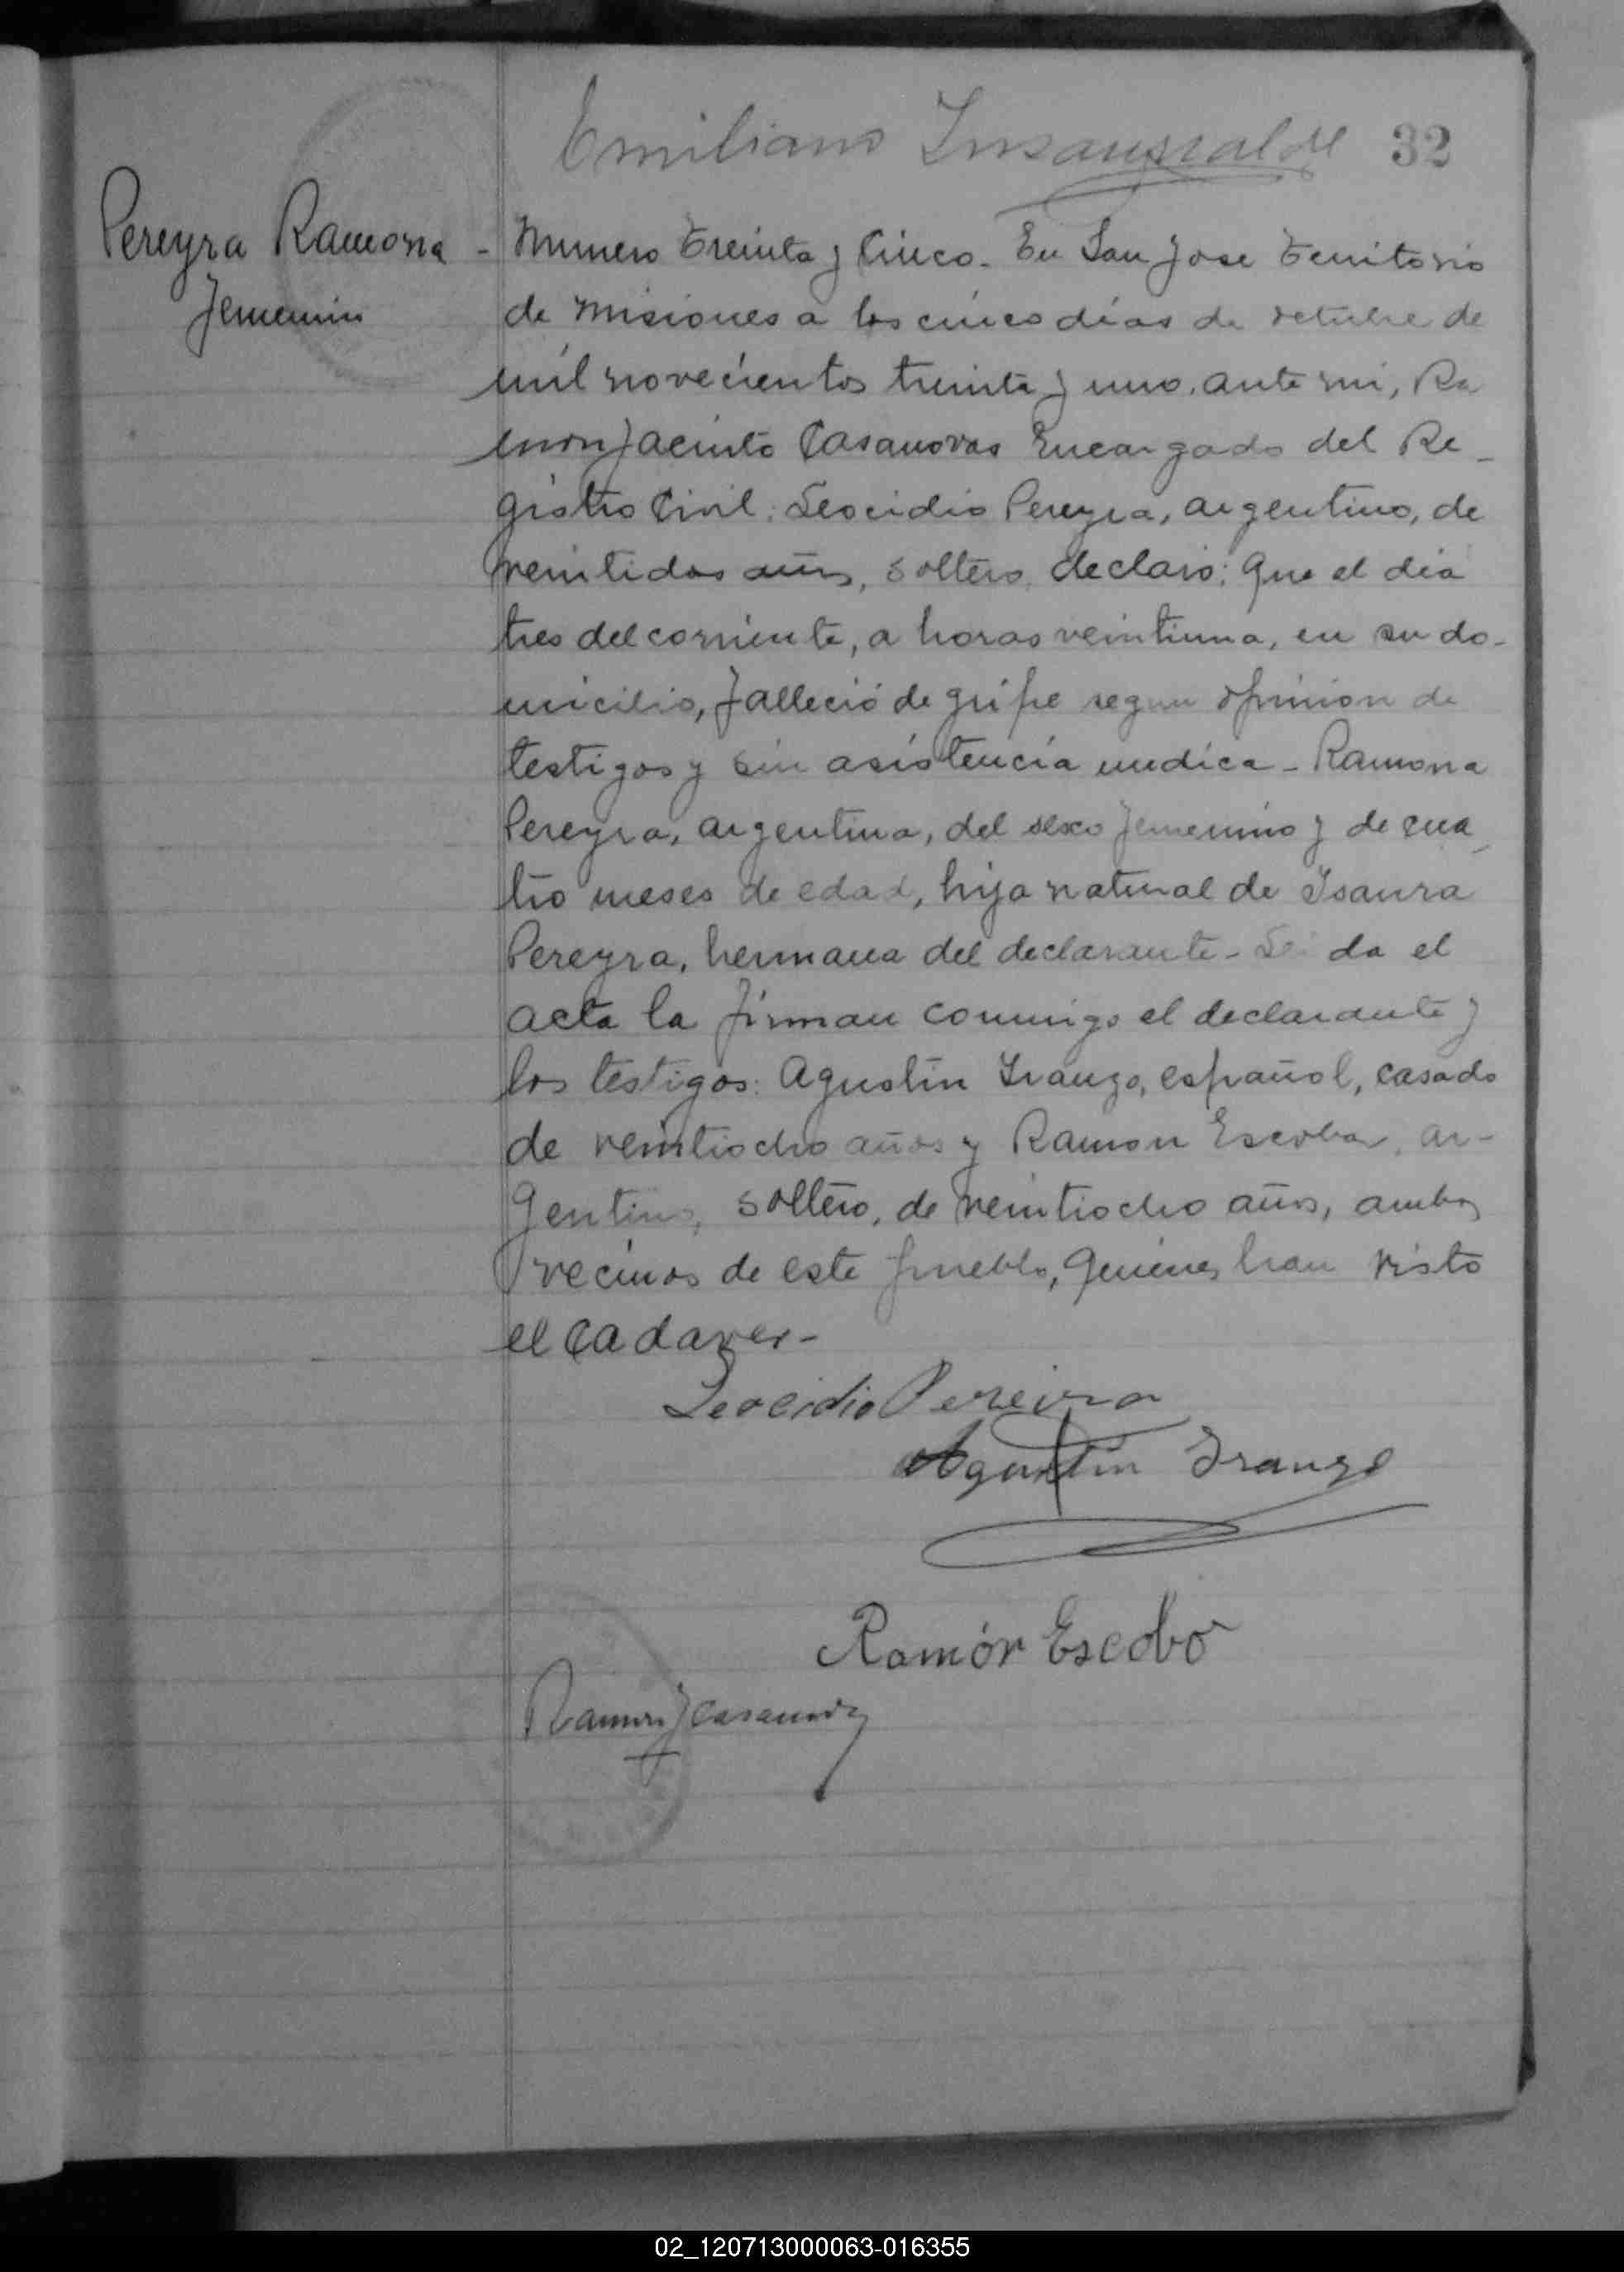 Emiliano Insaurralde 32
Pereyra Ramona -
Femenin
Numero Treinta y Cinco. En San Jose Territorio
de Misiones a los cinco dias de octubre de
mil novecientos treinta y uno. ante mi, Ra
mon Jacinto Casanovas Encargado del Re-
gistro Civil: Leocidio Pereyra, argentino, de
veintidos años, soltero, declaro: Que el dia
tres del corriente, a horas veintiuna, en su do-
micilio, falleció de gripe segun opinion de
testigos y sin asistencia medica - Ramona
Pereyra, argentina, del sexo femenino y de cua
tro meses de edad, hija natural de Isaura
Pereyra, hermana del declarante - Leida el
acta la firman conmigo el declarante y
los testigos: Agustin Iranzo, español, casado
de veintiocho años y Ramon Escobar, ar-
gentino, soltero, de veintiocho años, ambos
vecinos de este pueblo, quienes han visto
el cadaver-
Leocidio Pereira
Agustin Iranzo
Ramón Escobar
Ramon J Casanovas
02_120713000063-016355